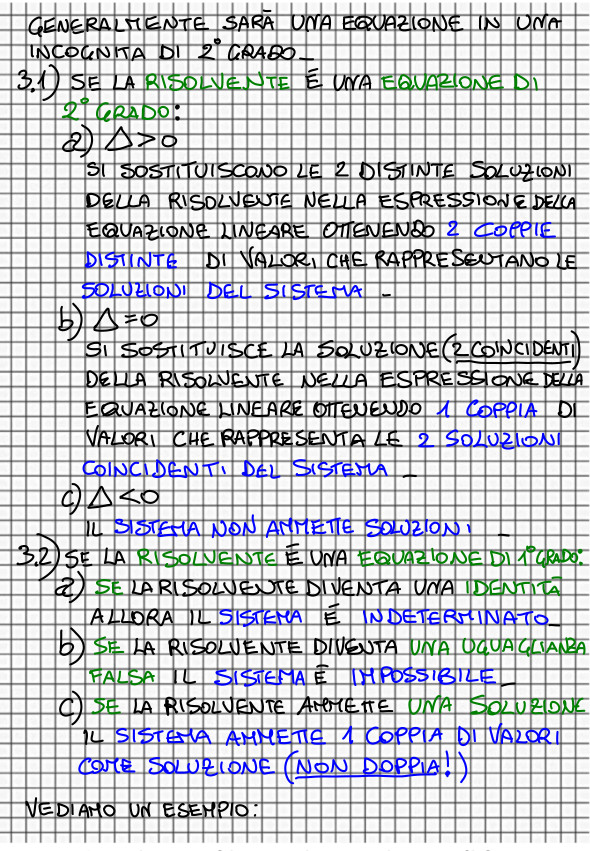 GENERALMENTE SARÀ UNA EQUAZIONE IN UNA
INCOGNITA DI 2° GRADO_
3.1) SE LA RISOLVENTE É UNA EQUAZIONE DI
2° GRADO:
a) Δ>0
SI SOSTITUISCONO LE 2 DISTINTE SOLUZIONI
DELLA RISOLVENTE NELLA ESPRESSIONE DELLA
EQUAZIONE LINEARE OTTENENDO 2 COPPIE
DISTINTE DI VALORI CHE RAPPRESENTANO LE
SOLUZIONI DEL SISTEMA _
b) Δ=0
SI SOSTITUISCE LA SOLUZIONE (2 COINCIDENTI)
DELLA RISOLVENTE NELLA ESPRESSIONE DELLA
EQUAZIONE LINEARE OTTENENDO 1 COPPIA DI
VALORI CHE RAPPRESENTA LE 2 SOLUZIONI
COINCIDENTI DEL SISTEMA _
c) Δ<0
IL SISTEMA NON AMMETTE SOLUZIONI _
3.2) SE LA RISOLVENTE É UNA EQUAZIONE DI 1° GRADO:
a) SE LA RISOLVENTE DIVENTA UNA IDENTITÀ
ALLORA IL SISTEMA É INDETERMINATO_
b) SE LA RISOLVENTE DIVENTA UNA UGUAGLIANZA
FALSA IL SISTEMA É IMPOSSIBILE_
c) SE LA RISOLVENTE AMMETTE UNA SOLUZIONE
IL SISTEMA AMMETTE 1 COPPIA DI VALORI
COME SOLUZIONE (NON DOPPIA!)
VEDIAMO UN ESEMPIO: